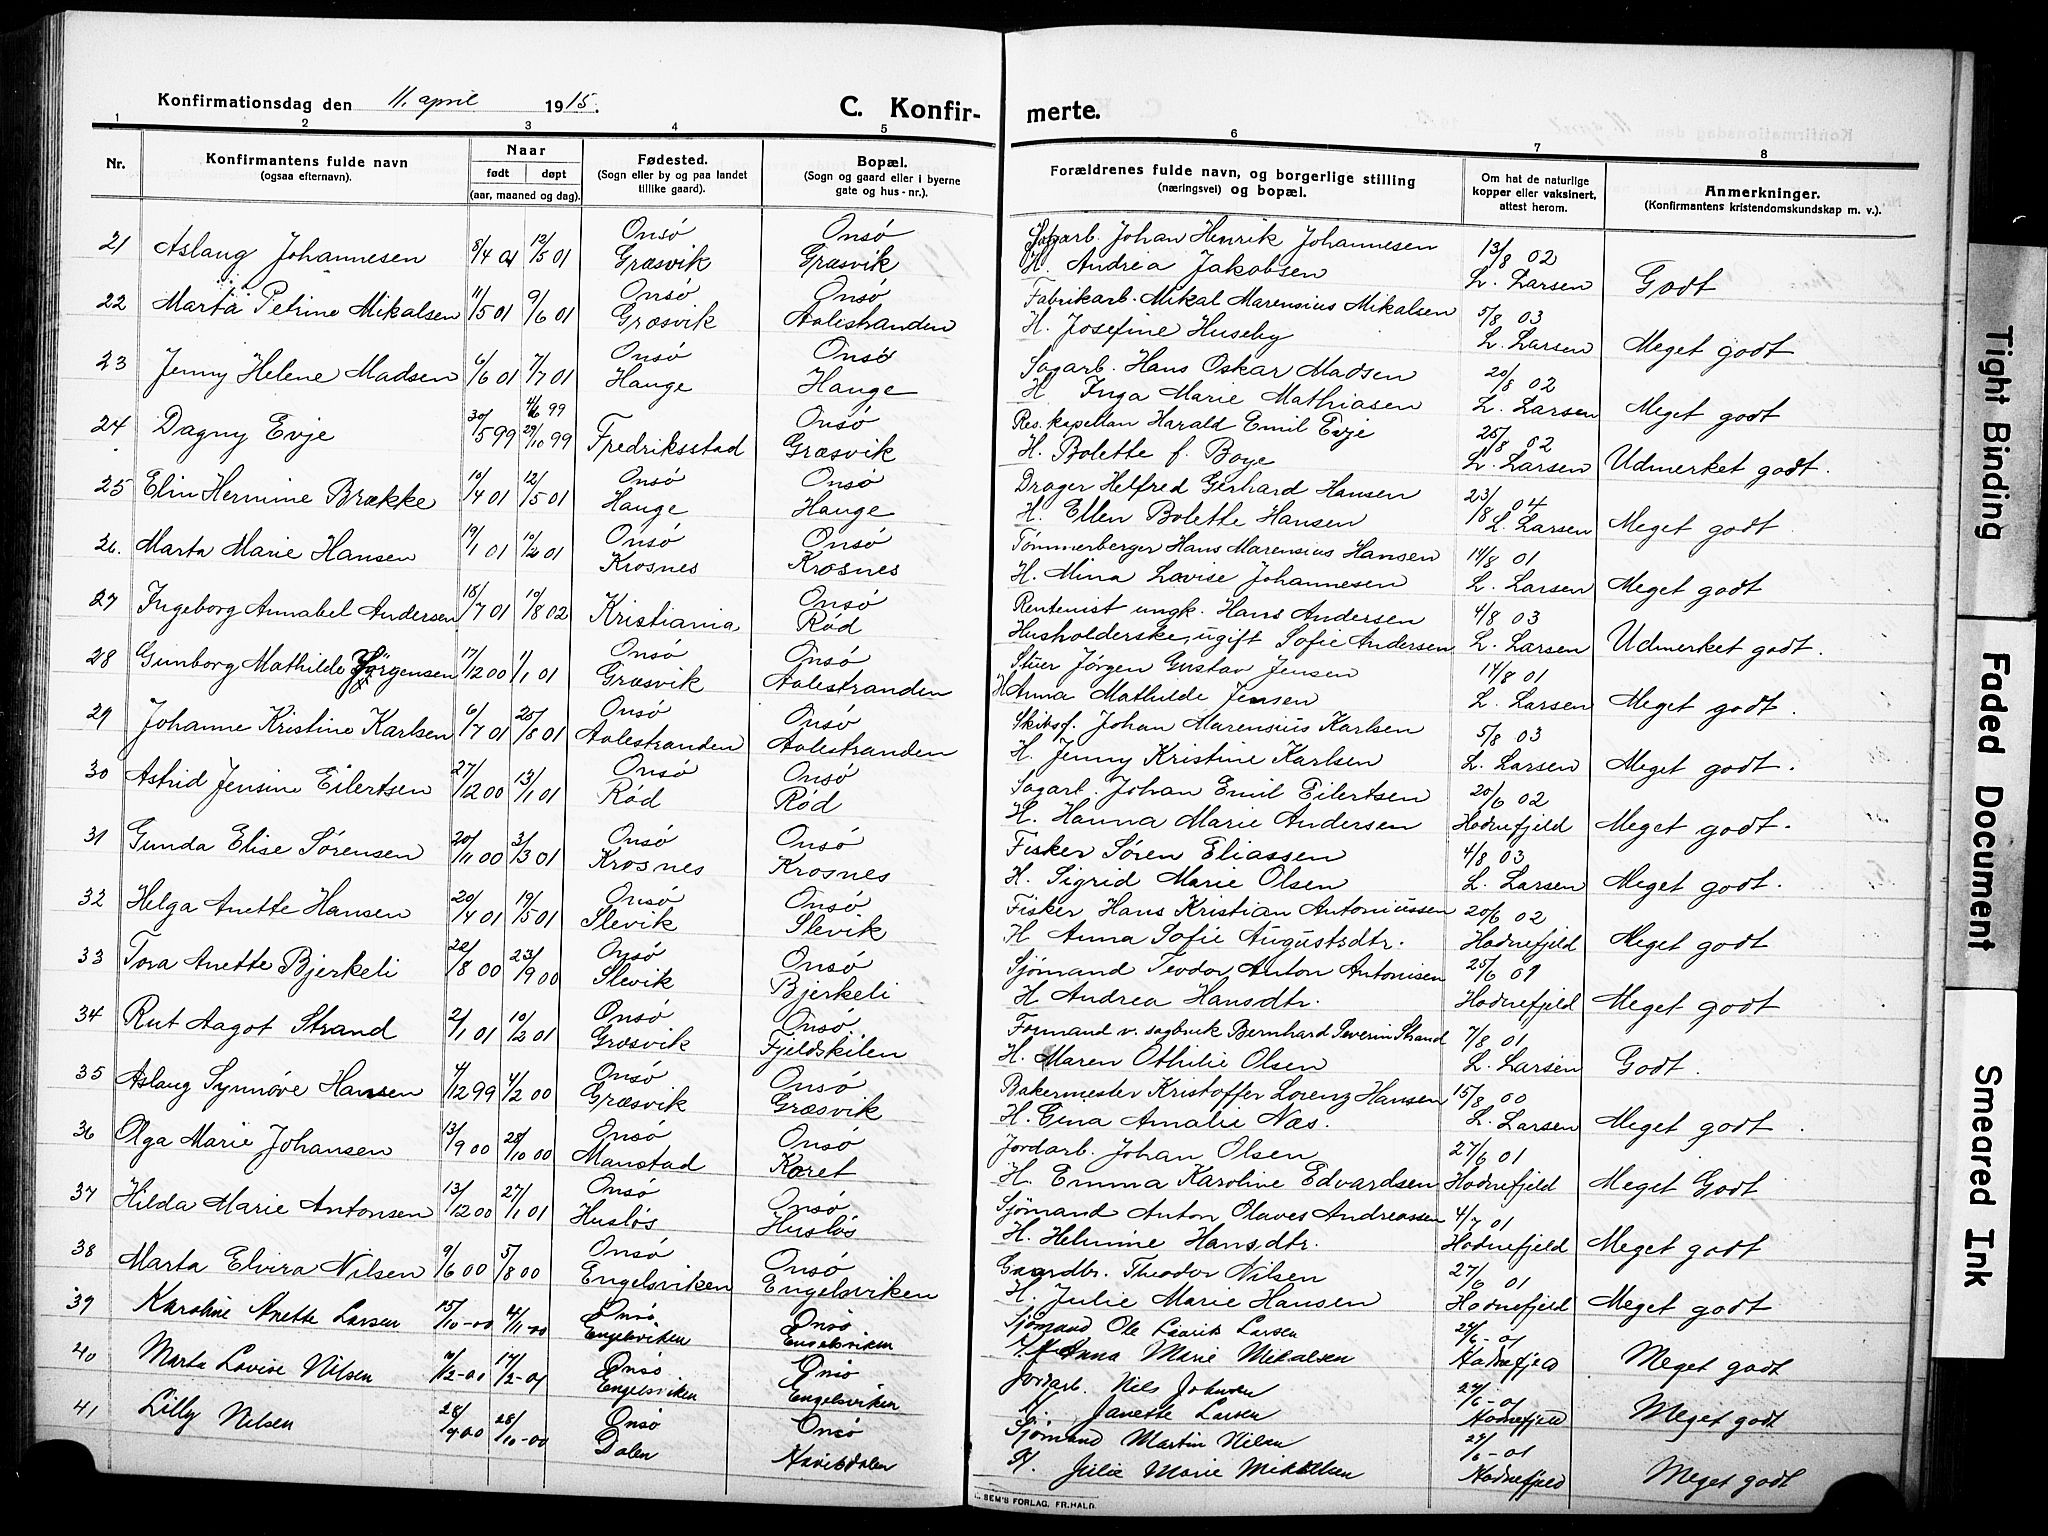 Konfirmationsdag den 11. april 1915.
C. Konfir-
merte.
1 2 3 4 5 6 7 8
Nr.
Konfirmantens fulde navn
(ogsaa efternavn).
Naar
født døpt
(aar, maaned og dag).
Fødested.
(Sogn eller by og paa landet
tillike gaard).
Bopæl.
(Sogn og gaard eller i byerne
gate og hus-nr.).
Forældrenes fulde navn, og borgerlige stilling
(næringsvei) og bopæl.
Om hat de naturlige
kopper eller vaksinert,
attest herom.
Anmerkninger.
(Konfirmantens kristendomskundskap m. v.).
21 Aslaug Johannesen 8/4 01 12/5 01 Onsö Græsvik Onsö Græsvik Sagarb. Johan Henrik Johannesen 13/8 02
H. Andrea Jakobsen L. Larsen Godt
22 Marta Petrine Mikalsen 11/5 01 9/6 01 Onsö Græsvik Onsö Aalestranden Fabrikarb. Mikal Marensius Mikalsen 5/8 03
H. Josefine Huseby L. Larsen Meget godt
23 Jenny Helene Madsen 6/6 01 7/7 01 Onsö Hauge Onsö Hauge Sagarb. Hans Oskar Madsen 20/8 02
H. Inga Marie Mathiasen L. Larsen Meget godt
24 Dagny Evje 30/5 99 4/6 99 29/10 99 Fredriksstad Onsö Græsvik Res. kapellan Harald Emil Evje 25/8 02
H. Bolette f. Boye L. Larsen Udmerket godt.
25 Elin Hermine Brække 10/4 01 12/5 01 Onsö Hauge Onsö Hauge Drager Helfred Gerhard Hansen 23/8 04
H. Ellen Bolette Hansen L. Larsen Meget godt
26. Marta Marie Hansen 19/1 01 10/2 01 Onsö Krosnes Onsö Krosnes Tømmerberger Hans Marensius Hansen 14/8 01
H. Mina Lovise Johannesen L. Larsen Meget godt
27 Ingeborg Annabel Andersen 18/7 01 10/8 02 Kristiania Onsö Rød Rentenist ungk. Hans Andersen 4/8 03
Husholderske, ugift Sofie Andersen L. Larsen Udmerket godt.
28 Gunborg Mathilde Jörgensen 17/12 00 1/1 01 Onsö Græsvik Onsö Aalestranden Stuer Jörgen Gustav Jensen 14/8 01
H. Anna Mathilde Jensen L. Larsen Meget godt.
29 Johanne Kristine Karlsen 6/7 01 25/8 01 Onsö Aalestranden Onsö Aalestranden Skibsf. Johan Marensius Karlsen 5/8 03
H. Jenny Kristine Karlsen L. Larsen Meget godt.
30 Astrid Jensine Eilertsen 27/12 00 13/1 01 Onsö Rød Onsö Rød Sagarb. Johan Emil Eilertsen 20/6 02
H. Hanna Marie Andersen Hodnefjeld Meget godt.
31 Gunda Elise Sørensen 20/11 00 3/3 01 Onsö Krosnes Onsö Krosnes Fisker Søren Eliassen 4/8 03
H. Sigrid Marie Olsen L. Larsen Meget godt.
32 Helga Anette Hansen 20/4 01 19/5 01 Onsö Slevik Onsö Slevik Fisker Hans Kristian Antoniussen 20/6 02
H. Anna Sofie Augustsdtr. Hodnefjeld Meget godt
33 Tora Anette Bjerkeli 22/8 00 23/9 00 Onsö Slevik Onsö Bjerkeli Sjømand Teodor Anton Antonisen 25/6 01
H. Andrea Hansdtr. Hodnefjeld Meget godt
34 Rut Aagot Strand 2/1 01 10/2 01 Onsö Græsvik Onsö Fjeldskilen Formand v. sagbruk Bernhard Severin Strand 7/8 01
H. Maren Othilie Olsen L. Larsen Godt.
35 Aslaug Synnöve Hansen 4/12 99 4/2 00 Onsö Græsvik Onsö Græsvik Bakermester Kristoffer Lorenz Hansen 15/8 00
H. Gina Amalie Næs. L. Larsen Meget godt.
36 Olga Marie Johansen 13/9 00 28/10 00 Onsö Manstad Onsö Karet Jordarb. Johan Olsen 27/6 01
H. Emma Karoline Edvardsen Hodnefjeld Meget Godt
37 Hilda Marie Antonsen 13/12 00 27/1 01 Onsö Husløs Onsö Husløs Sjømand Anton Olaves Andreassen 4/7 01
H. Helmine Hansdtr. Hodnefjeld Meget godt
38 Marta Elvira Nilsen 9/6 00 5/8 00 Onsö Engelsviken Onsö Engelsviken Gaardbr. Theodor Nilsen 27/6 01
H. Julie Marie Hansen Hodnefjeld Meget godt
39 Karoline Anette Larsen 15/10-00 4/11-00 Onsö Engelsviken Onsö Engelsviken Sjömand Ole Larsen
H. Anna Marie Mikalsen Hodnefjeld Meget godt
40 Marta Lovise Nilsen 17/2-01 Onsö Engelsviken Onsö Engelsviken Jordarb. Nils Johnsen
H. Janette Larsen Hodnefjeld Meget godt
41 Lilly Nilsen 28/10-00 Onsö Dalen Onsö Sjömand Martin Nilsen
H. Julie Marie Mikkelsen Hodnefjeld Meget godt
SEM'S FORLAG, FR.HALD.
Tight Binding
Faded Document
Smeared Ink